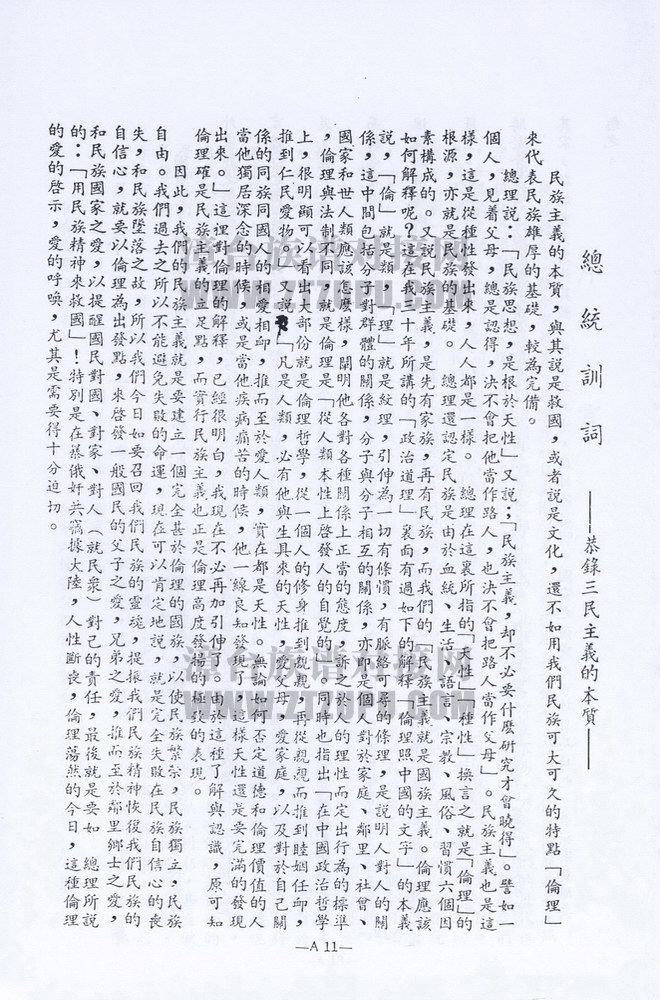 總統訓詞
——恭錄三民主義的本質——
民族主義的本質，與其說是救國，或者說是文化，還不如用我們民族可大可久的特點「倫理」
來代表民族雄厚的基礎，較為完備。
總理說：「民族思想，是根於天性」又說；「民族主義，却不必要什麼研究才會曉得」。譬如一
個人，見着父母，總是認得，決不會把他當作路人，也決不會把路人當作父母」。民族主義也是這
樣，這是從種性發出來，人人都是一樣。　總理在這裏所指的「天性」「種性」換言之就是「倫理」的
根源，亦就是民族的基礎。　總理還認定民族是由於血統、生活、語言、宗教、風俗、習慣六個因
素構成的。又說民族主義，是先有家族，再有民族，而我們的「民族主義就是國族主義。倫理應該
如何解釋呢？這在我三十年所講的「政治道理」裏面有過如下的解釋「倫理照中國的文字」的本義
說，「倫」就是類，「理」就是紋理，引伸為一切有條慣，有脈絡可尋的條理，是說明人對人的關
係，這中間包括分子對群體的關係，分子與分子相互的關係，亦即是個人對於家庭、鄰里、社會、
國家和世人類應該怎麼樣，闡明他各對各種關係上正當的態度，訴之於人的理性而定出行為的標準
，倫理與法制不同，就是倫理是「從人類本性上啓發人的自覺的」。同時也指出「在中國政治哲學
上，很明顯可以看出大部份就是倫理哲學，從一個人的修身推到親親，再從親親而推到睦婣任卹，
推到仁民愛物。」又說「凡是人類，必有他與生具來的天性，愛父母，愛家庭，以及對於自己關
係的同族同國人的相愛相卹，推而至於愛人類，實在都是天性。無論如何否定道德和倫理價值的人
當他獨居深念的時候，或是當他疾病痛苦的時候，他一線良知發現了，這樣天性還是要完滿的發現
出來。」這裡對倫理的解釋，已經很明白，我現在不必再加引伸了。由於這種了解與認識，原可知
倫理確是民族主義的立足點，而實行民族主義也正是倫理高度發揚的極致的表現。
因此，我們的民族主義就是要建立一個完全甚於倫理的國族，以使民族繁宗，民族獨立，民族
自由。我們過去之所以不能避免失敗的命運，現在可以肯定地說，就是完全失敗在民族自信心的喪
失，和民族墜落之故，所以我們今日如要召回我們民族的靈魂，提振我們民族精神恢復我們民族的
自信心，就要以倫理為出發點，來啓發一般國民的父子之愛，兄弟之愛，推而至於鄰里鄉士之愛，
和民族國家之愛，以提醒國民對國、對家、對人（就民衆）對己的責任，最後就是要如　總理所說
的：「用民族精神來救國」！特別是在蘇俄奸共竊據大陸，人性斷喪，倫理蕩然的今日，這種倫理
的愛的啓示，愛的呼喚，尤其是需要得十分迫切。
—A 11—